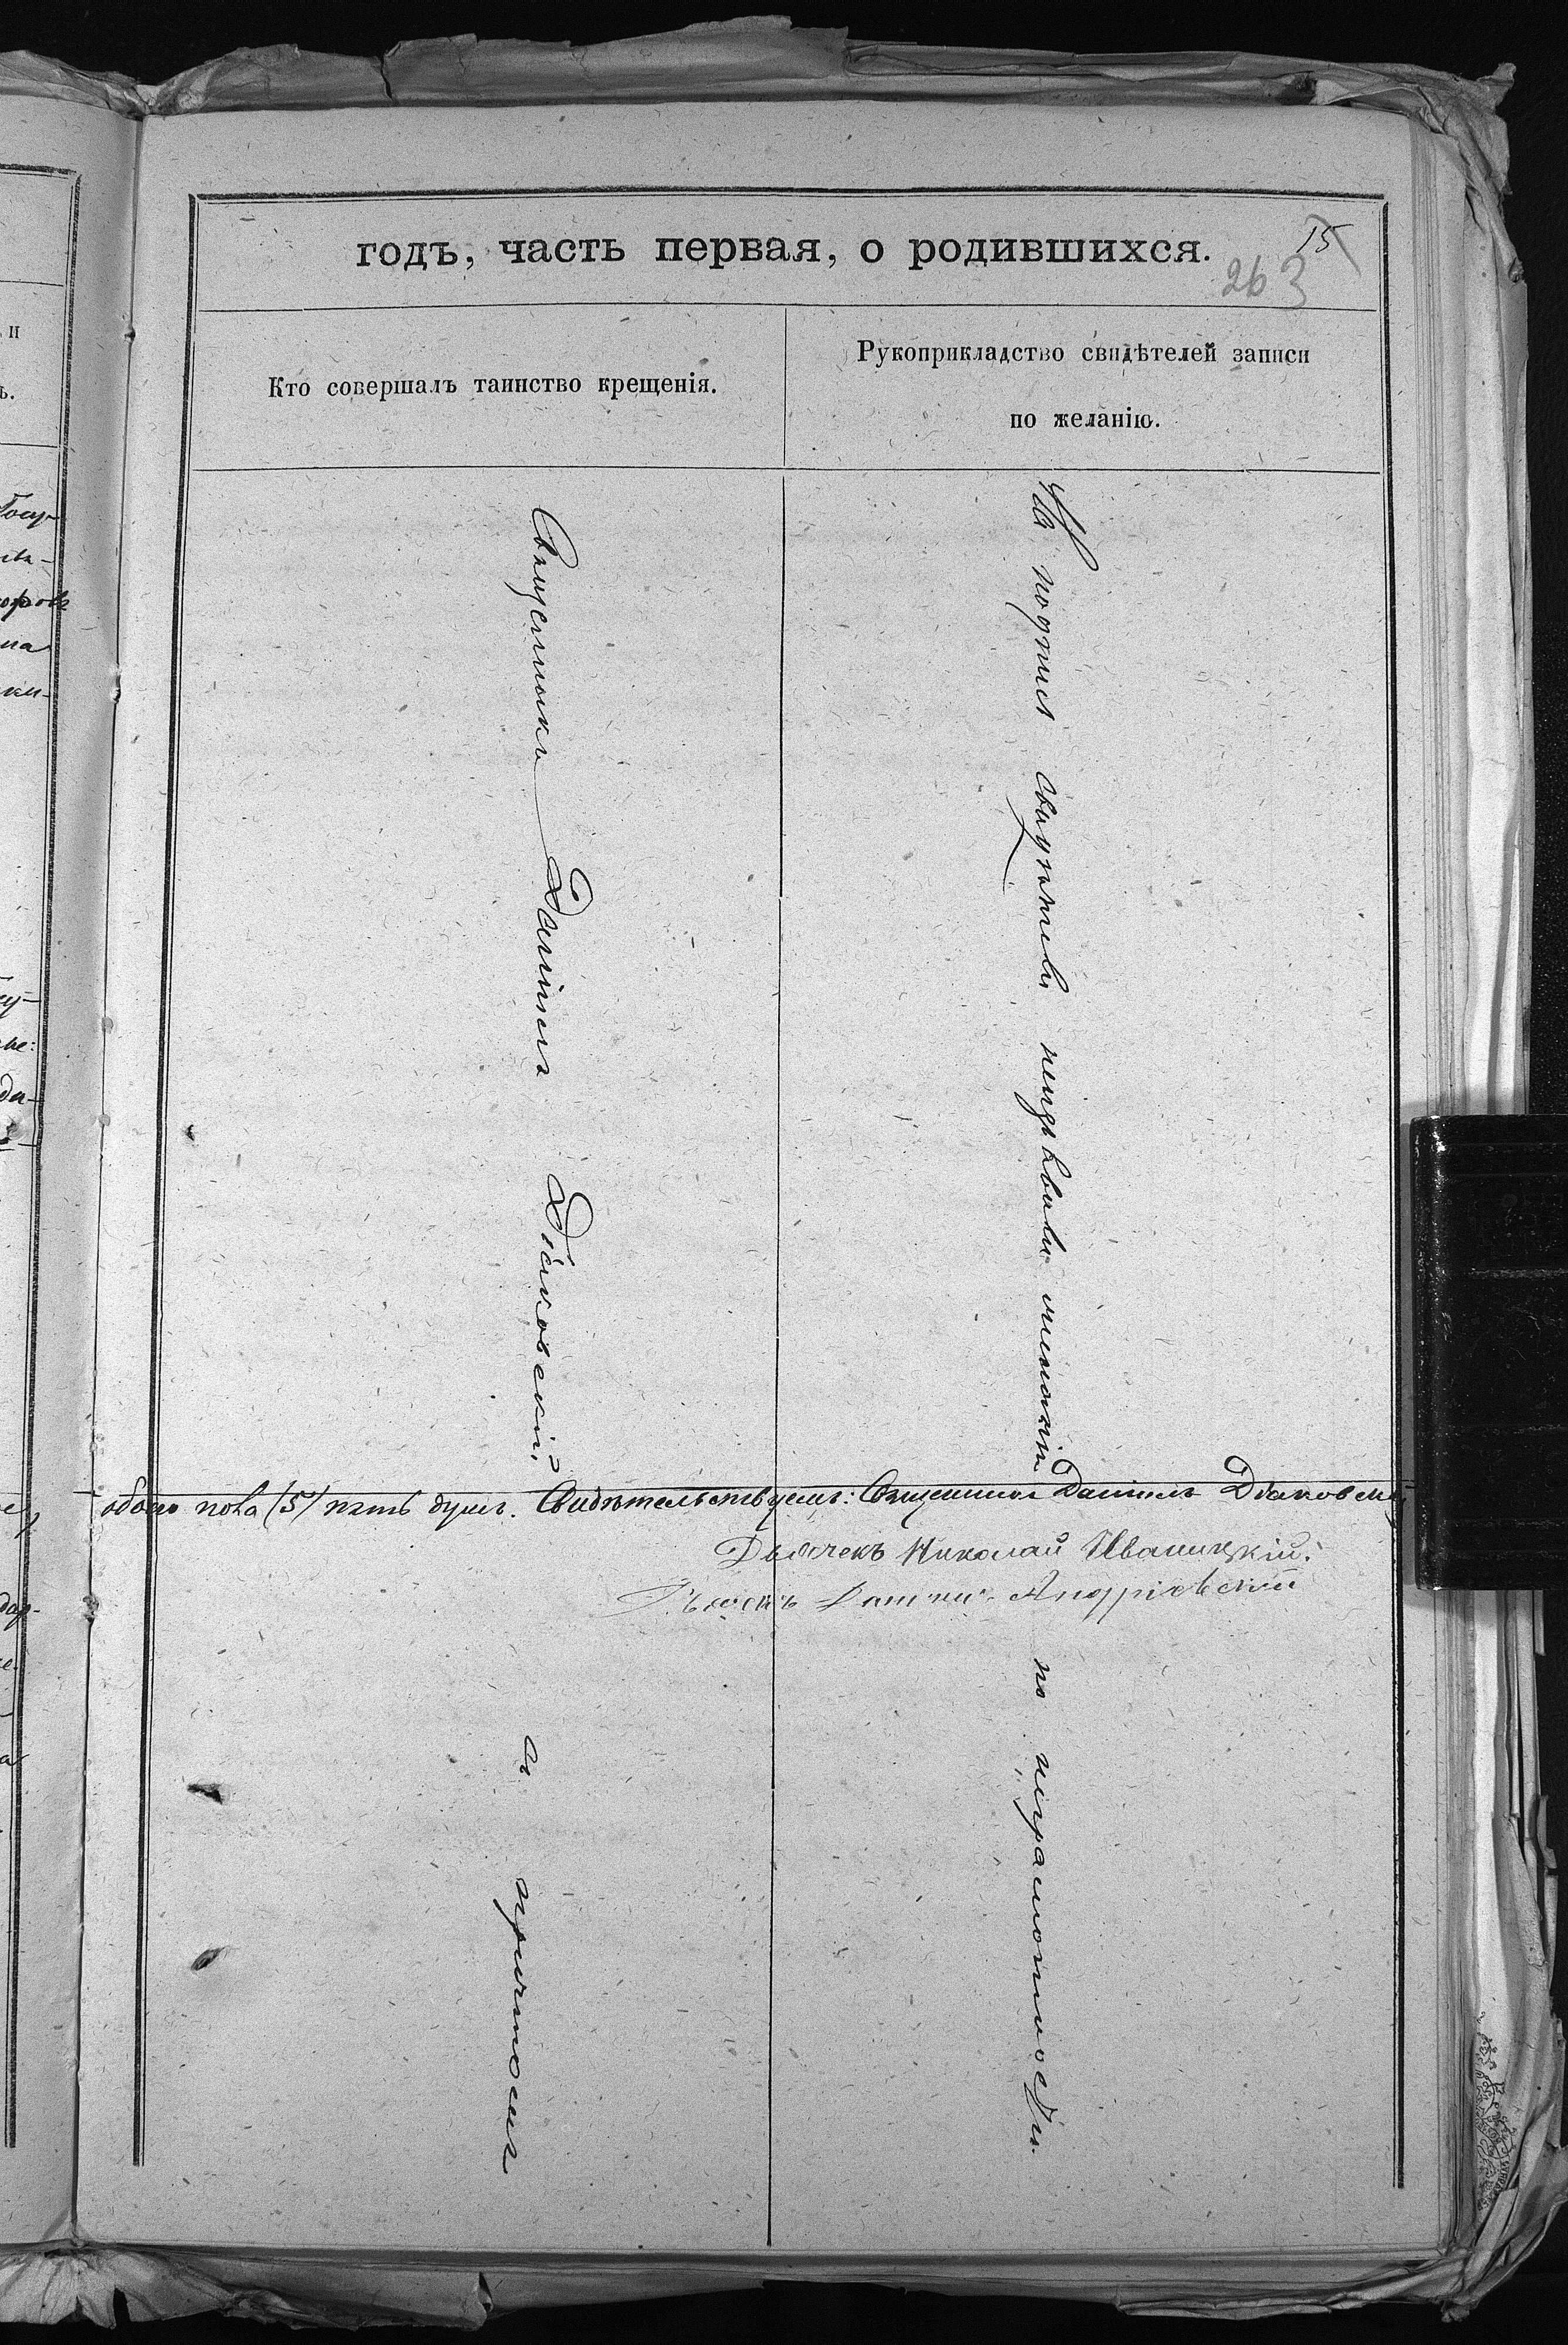 годъ, часть первая, о родившихся.
15
263
Кто совершалъ таинство крещенія.
Рукоприкладство свидѣтелей записи
по желанію.
Священникъ Даніилъ Діаковскій
съ причтомъ
На подписи свидѣтели неизъявили желанія
по неграмотности.
обоего пола (5) пять душъ. Свидѣтельствуемъ: Священникъ Даніилъ Діаковскій
Дьячекъ Николай Иваницкій.
Андріевскій